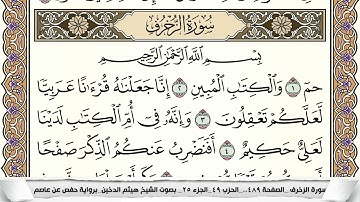 سُورَةُ الزُّخْرُفِ
بِسْمِ اللَّهِ الرَّحْمَٰنِ الرَّحِيمِ
حمٓ ١ وَالْكِتَابِ الْمُبِينِ ٢ إِنَّا جَعَلْنَاهُ قُرْءَانًا عَرَبِيًّا
لَّعَلَّكُمْ تَعْقِلُونَ ٣ وَإِنَّهُ فِي أُمِّ الْكِتَابِ لَدَيْنَا
لَعَلِيٌّ حَكِيمٌ ٤ أَفَنَضْرِبُ عَنكُمُ الذِّكْرَ صَفْحًا
سورة الزخرف _الصفحة ٤٨٩_ الحزب ٤٩_الجزء ٢٥_ بصوت الشيخ هيثم الدخين_برواية حفص عن عاصم